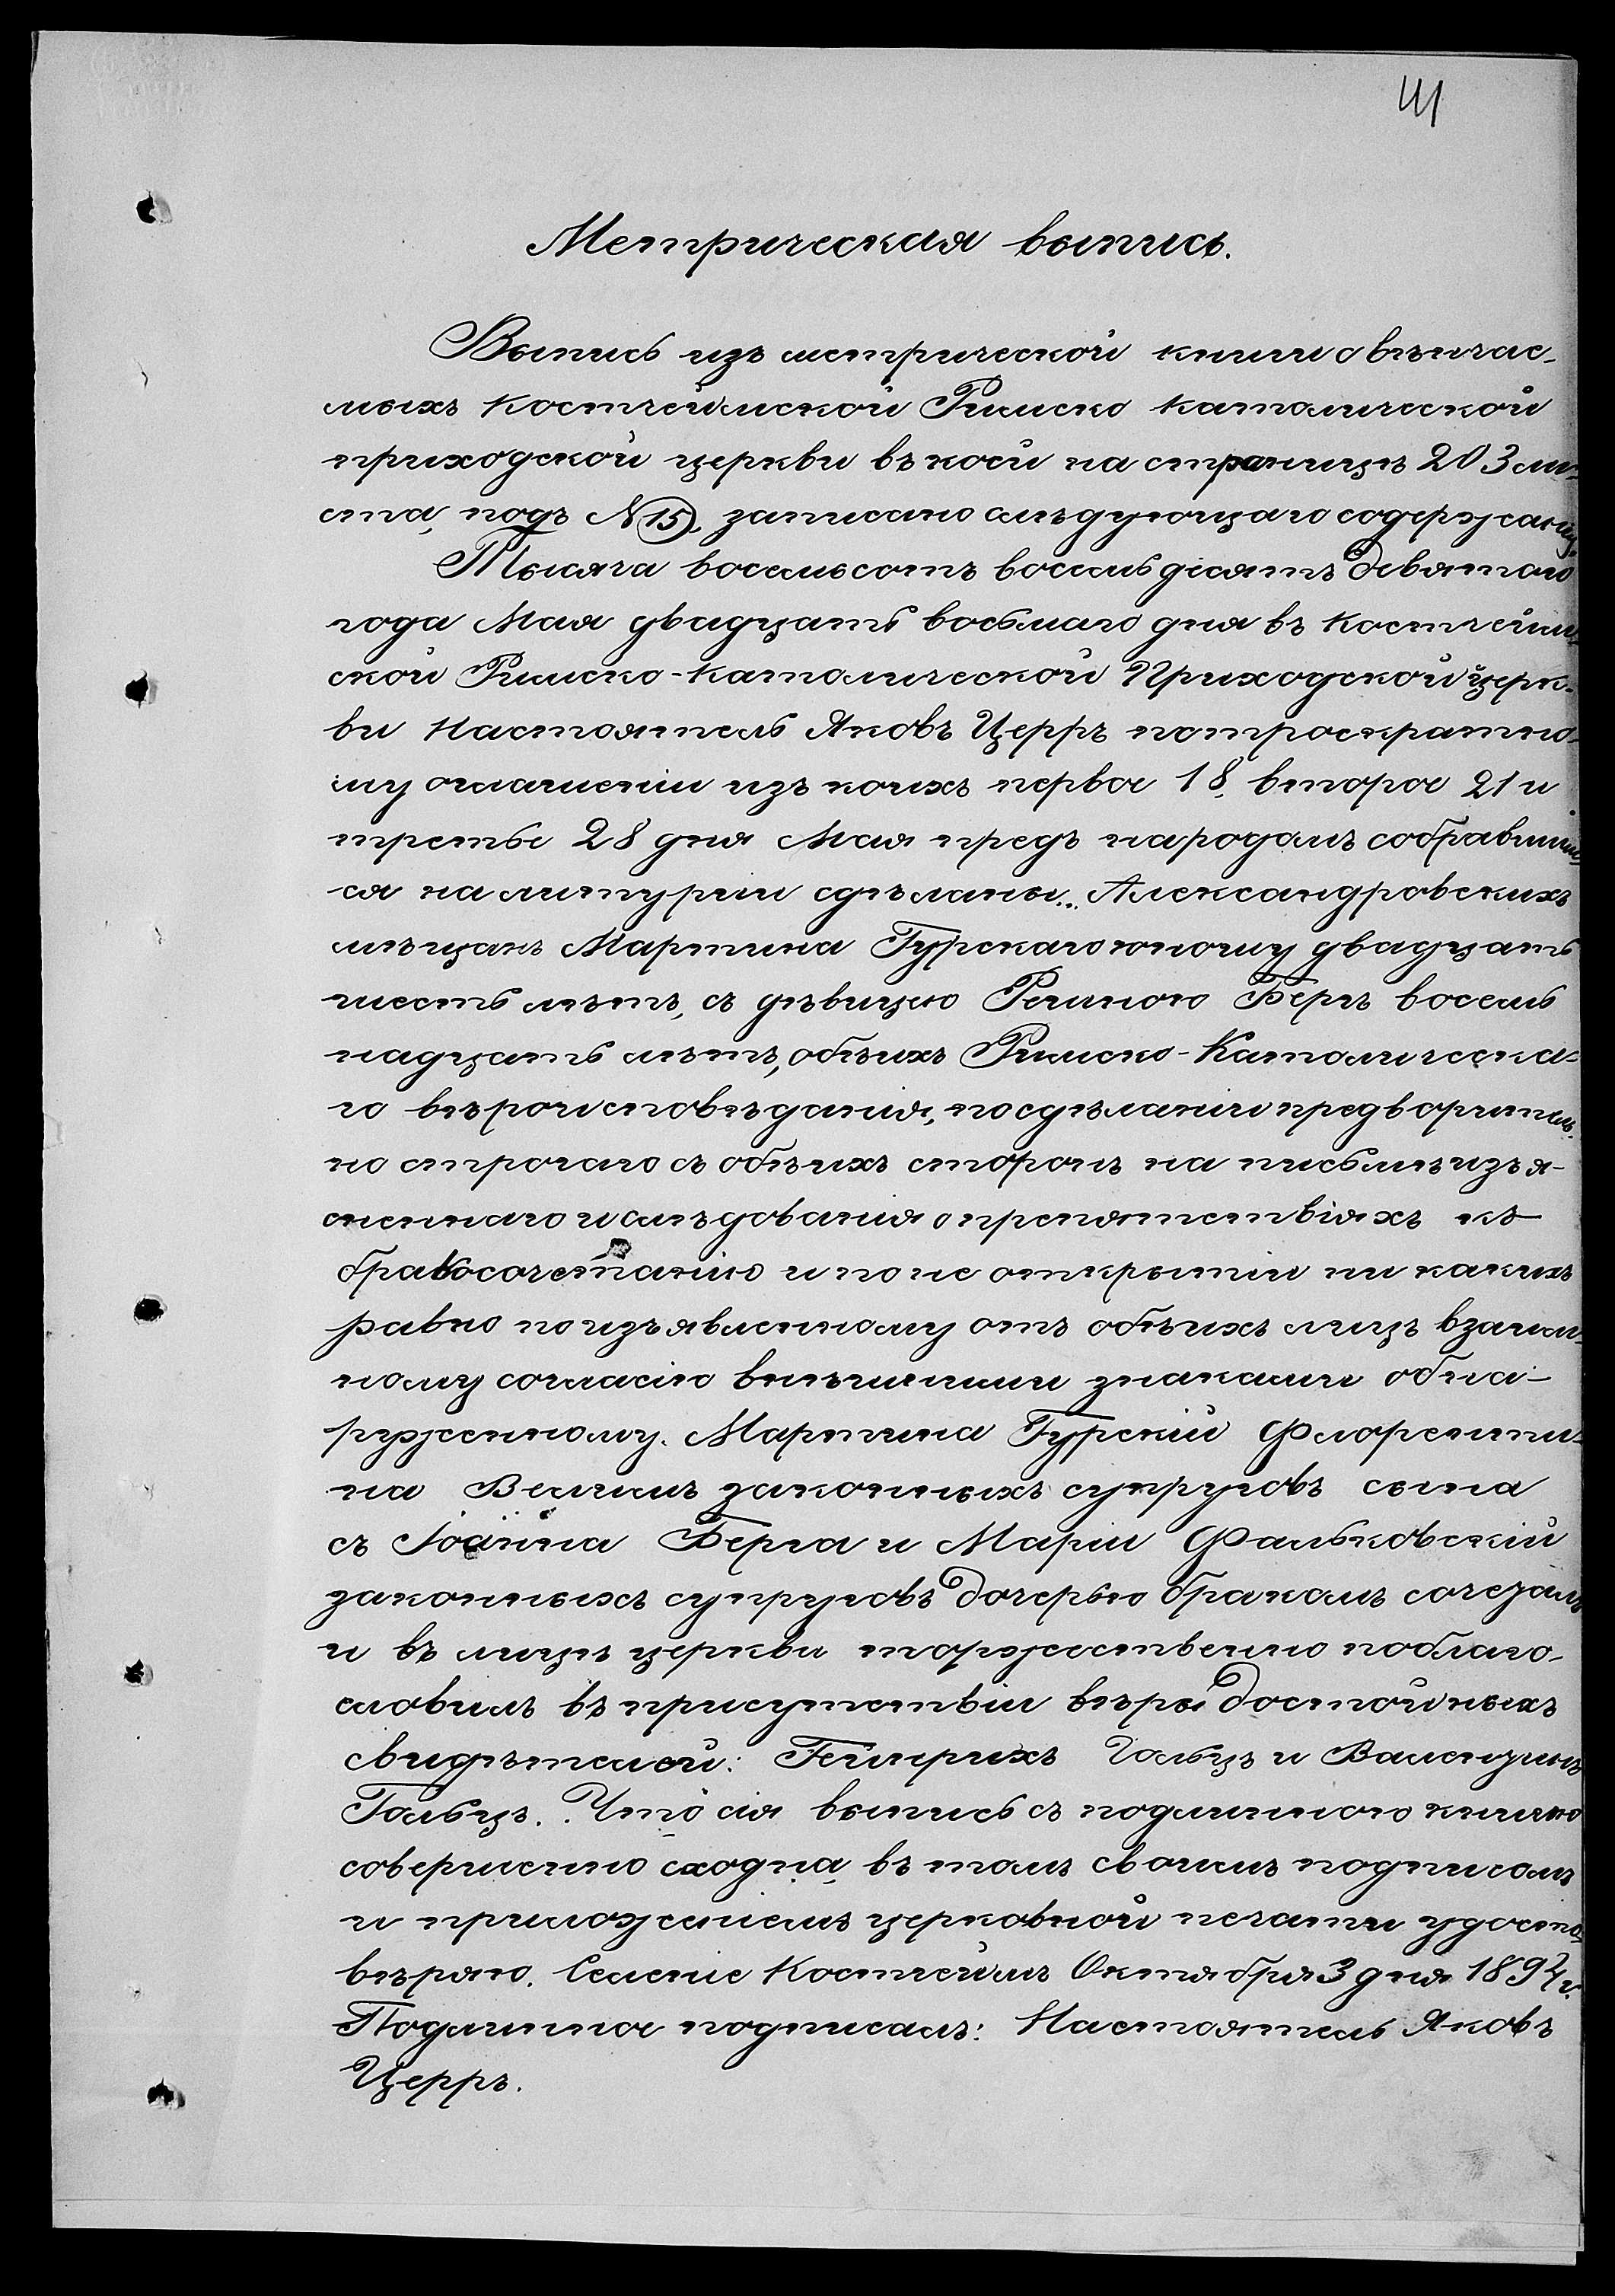 41
Метрическая выпись.
Выпись изъ метрической книги о вѣнчае-
мыхъ Костгеймской Римско Католической
приходской церкви въ коей на страницѣ 203 ли-
ста, подъ № 15, записано слѣдующаго содержанiя.
Тысяча восемьсотъ восемьдесятъ девятаго
года Мая двадцать восьмаго дня въ Костгейм-
ской Римско-Католической Приходской церк-
ви Настоятель Яковъ Церръ по троекратно-
му оглашенiи изъ коихъ первое 18, второе 21 и
третье 28 дня Мая предъ народомъ собравшим-
ся на литургiи сдѣланы.. Александровскихъ
мѣщанъ Мартина Гурскаго юношу двадцать
шесть лѣтъ, съ дѣвицею Региною Бергъ восемь
надцать лѣтъ, обѣихъ Римско-Католическа-
го вѣроисповѣданiя, по сдѣланiи предворитель-
но строгаго съ обѣихъ сторонъ на письмѣ изъя-
сненнаго изслѣдованiя о препятствiяхъ къ
бракосочетанiю и по не открытiи ни какихъ
равно по изъявленному отъ обѣихъ лицъ взаим-
ному согласiю внѣшними знаками обна-
руженному. Мартина Гурскiй Флоренти-
на Велимъ законныхъ супруговъ сына
съ Iоанна Берга и Марiи Фальковскiй
законныхъ супруговъ дочерью бракомъ сочеталъ
и въ лицѣ церкви торжественно поблаго-
словилъ въ присутствiи вѣры достойныхъ
свидѣтелей: Гейнрихъ Гольцъ и Валентинъ
Гольцъ. Что сiя выпись съ подлинною книгою
совершенно сходна, въ томъ своимъ подписомъ
и приложенiемъ церковной печати удосто-
вѣряю. Селенiе Костгеймъ Октября 3 дня 1894 г.
Подлинное подписалъ: Настоятель Яковъ
Церръ.